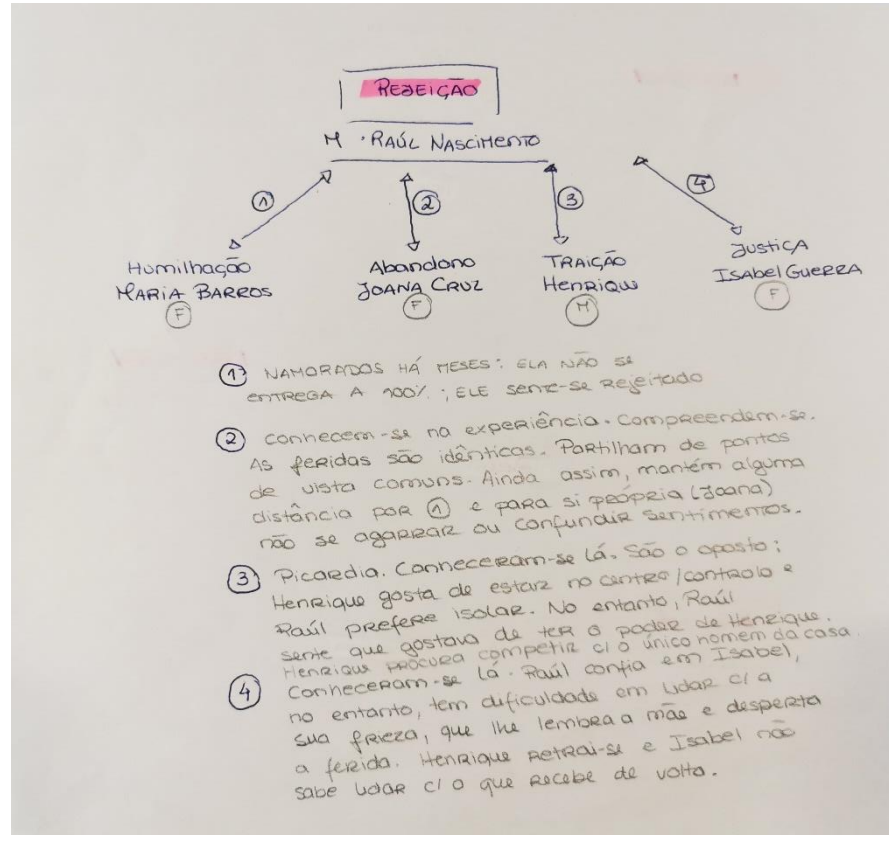 REJEIÇÃO
M • RAÚL NASCIMENTO
① ② ③ ④
Humilhação
MARIA BARROS
F
Abandono
JOANA CRUZ
F
TRAIÇÃO
Henrique
M
JUSTIÇA
ISABEL GUERRA
F
① NAMORADOS HÁ MESES: ELA NÃO SE
ENTREGA A 100%; ELE sente-se Rejeitado
② conhecem-se na experiência. Compreendem-se.
As feridas são idênticas. Partilham de pontos
de vista comuns. Ainda assim, mantém alguma
distância por ① e para si própria (Joana)
não se agarrar ou confundir sentimentos.
③ Picardia. Conheceram-se lá. São o oposto:
Henrique gosta de estar no centro/controlo e
Raúl prefere isolar. No entanto, Raúl
sente que gostava de ter o poder de Henrique.
Henrique procura competir c/ o único homem da casa.
④ Conheceram-se lá. Raúl confia em Isabel,
no entanto, tem dificuldade em lidar c/ a
sua frieza, que lhe lembra a mãe e desperta
a ferida. Henrique retrai-se e Isabel não
sabe lidar c/ o que recebe de volta.